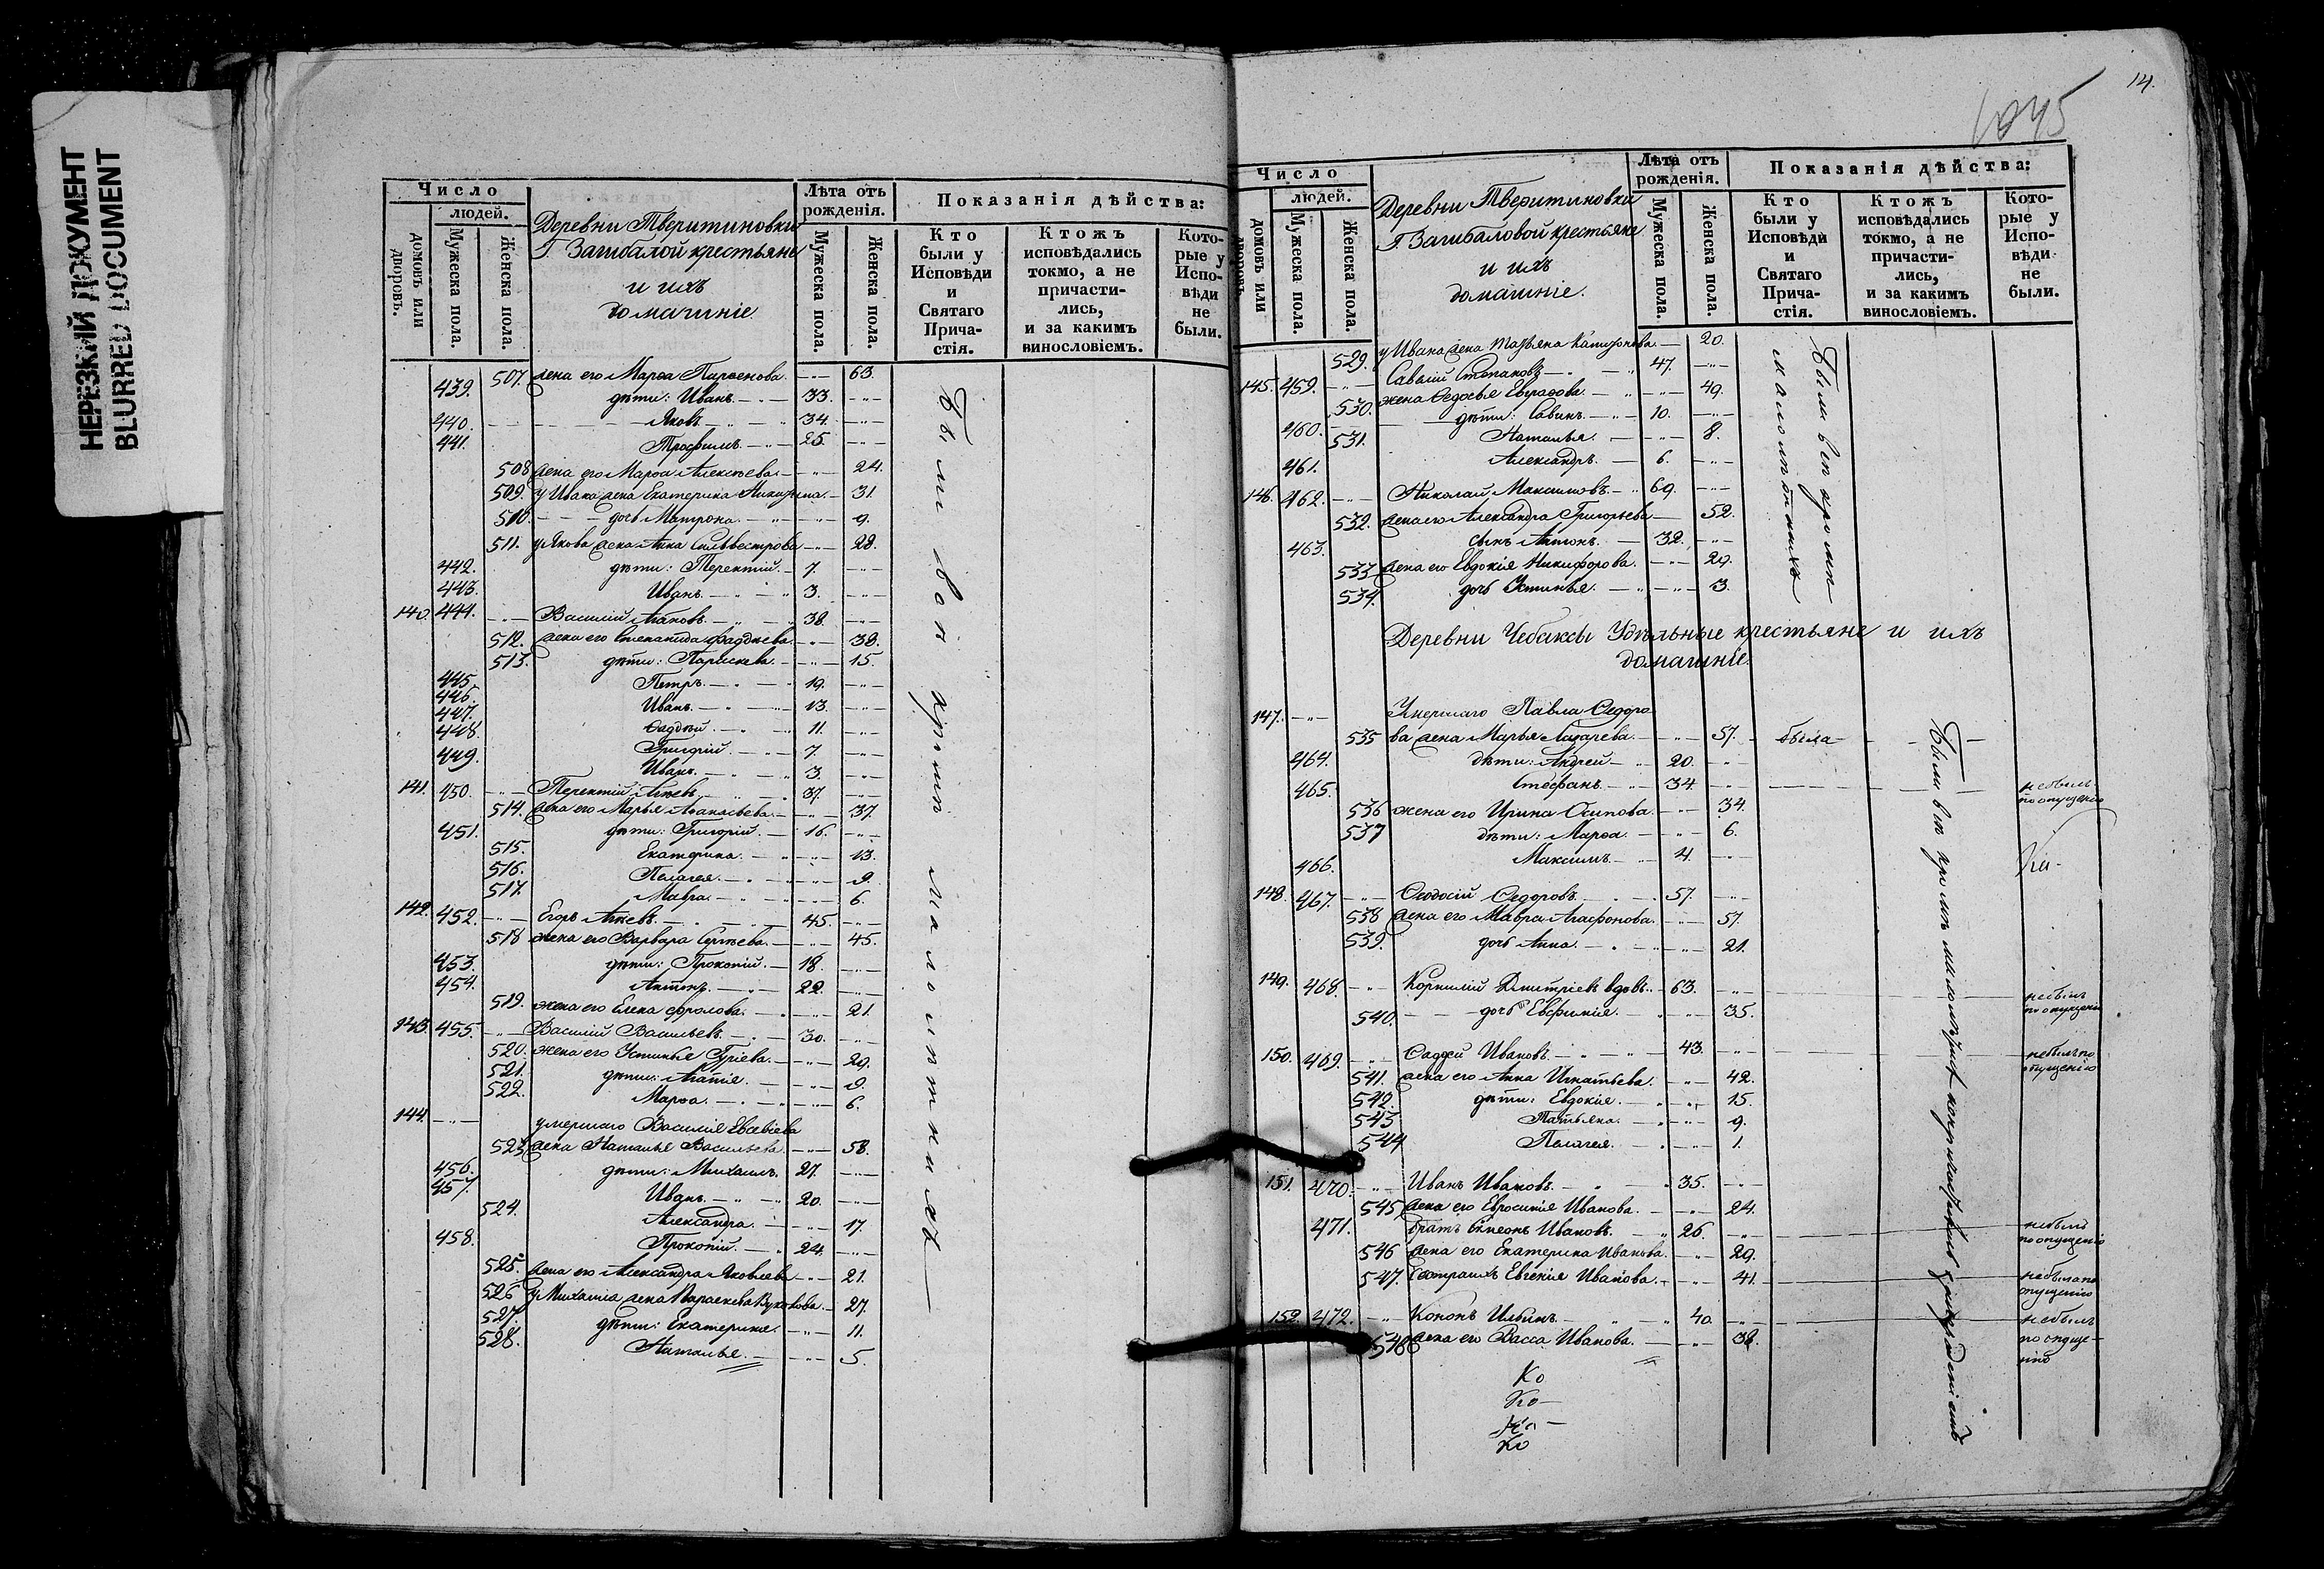 НЕРЕЗКИЙ ДОКУМЕНТ
BLURRED DOCUMENT
Число
людей.
домовъ или дворовъ.
Мужеска пола.
Женска пола.
Деревни Тверитиновки
Г. Загибалой крестьяне
и ихъ
домашніе
Лѣта отъ рожденія.
Мужеска пола.
Женска пола.
Показанія дѣйства:
Кто были у Исповѣди и Святаго Причастія.
Ктожъ исповѣдались токмо, а не причастились, и за какимъ винословіемъ.
Которые у Исповѣди не были.
507. жена его Марѳа Парѳенова. 63.
439. дѣти: Иванъ. 33.
440. Яковъ 34.
441. Трофимъ. 25.
508 жена его Марѳа Алексѣева 24.
509. у Ивана жена Екатерина Никифорова. 31.
510. дочь Матрона. 9.
511. у Якова жена Анна Сильвестрова 28.
442. дѣти: Терентій. 7.
443. Иванъ. 3.
140. 444. Василій 38.
512. жена его Степанида Фаддѣева 38.
513. дѣти: Параскева. 15.
445. Петръ. 19.
446. Иванъ. 13.
447. Ѳаддѣй 11.
448. Григорій. 7
449. Иванъ. 3.
141. 450. Терентій 37.
514. жена его Марья Аѳанасьева 37.
451. дѣти: Григорій. 16.
515. Екатерина. 13.
516. Пелагея. 9.
517. Мавра. 6.
142. 452. Егоръ 45.
518 жена его Варвара Сергѣева. 45.
453. дѣти: Прокопій. 18.
454. Антонъ. 22.
519. жена его Елена Фролова. 21.
143. 455. Василій Васильевъ. 30.
520. жена его Устинья Гуріева. 29.
521. дѣти: Агаѳія. 9.
522. Марѳа. 6.
144. умершаго Василія Евсевіева
523 жена Наталья Васильева. 58.
456. дѣти: Михаилъ. 27.
457. Иванъ. 20.
524. Александра. 17.
458. Прокопій. 24.
525. жена его Александра Яковлева 21.
526 у Михаила жена Параскева 27.
527. дѣти: Екатерина. 11.
528. Наталья. 5.
Были всѣ кромѣ малолѣтнихъ
14.
1045
Число
людей.
домовъ или дворовъ.
Мужеска пола.
Женска пола.
Деревни Тверитиновки
Г. Загибаловой крестьяне
и ихъ
домашніе.
Лѣта отъ рожденія.
Мужеска пола.
Женска пола.
Показанія дѣйства:
Кто были у Исповѣди и Святаго Причастія.
Ктожъ исповѣдались токмо, а не причастились, и за какимъ винословіемъ.
Которые у Исповѣди не были.
529. у Ивана жена Татьяна 20.
145. 459. Савелій Степановъ 47.
530. жена Ѳедосья 49.
460. дѣти: Савинъ. 10.
531. Наталья. 8.
461. Александръ. 6.
146. 462. Николай Максимовъ. 69.
532. жена его Александра Григорьева 52.
463. сынъ Антонъ. 32.
533 жена его Евдокія Никифорова. 29.
534. дочь Устинья. 3.
Были всѣ кромѣ малолѣтнихъ
Деревни Чебаксы Удѣльные крестьяне и ихъ
домашніе.
147. Умершаго Павла Ѳедоро
535 ва жена Марья Лазарева. 57. была
464. дѣти: Андрей 20.
465. Стефанъ. 34. небылъ по опущенію
536 жена его Ирина Осипова. 34.
537 дѣти: Марѳа. 6.
466. Максимъ. 4.
148. 467. Ѳеодосій Ѳедоровъ. 57.
538 жена его Мавра Агафонова. 57.
539. дочь Анна. 21.
149. 468. Корнилій Дмитріевъ вдовъ. 63. небылъ по опущенію
540. дочь Евфимія. 35.
150. 469. Ѳаддей Ивановъ. 43. небылъ по опущенію
541. жена его Анна Игнатьева. 42.
542. дѣти: Евдокія. 15.
543 Татьяна. 9.
544 Пелагея. 1.
151. 470. Иванъ Ивановъ. 35.
545 жена его Евросинія Иванова. 24.
471. братъ Симеонъ Ивановъ. 26. небылъ по опущенію
546 жена его Екатерина Иванова. 29.
547. Сестра ихъ Евгенія Иванова. 41. небыла по опущенію
152. 472. Кононъ Ильинъ. 40. небылъ по опущенію
548 жена его Васса Иванова. 38.
Ко
Ко
Ко
Ко